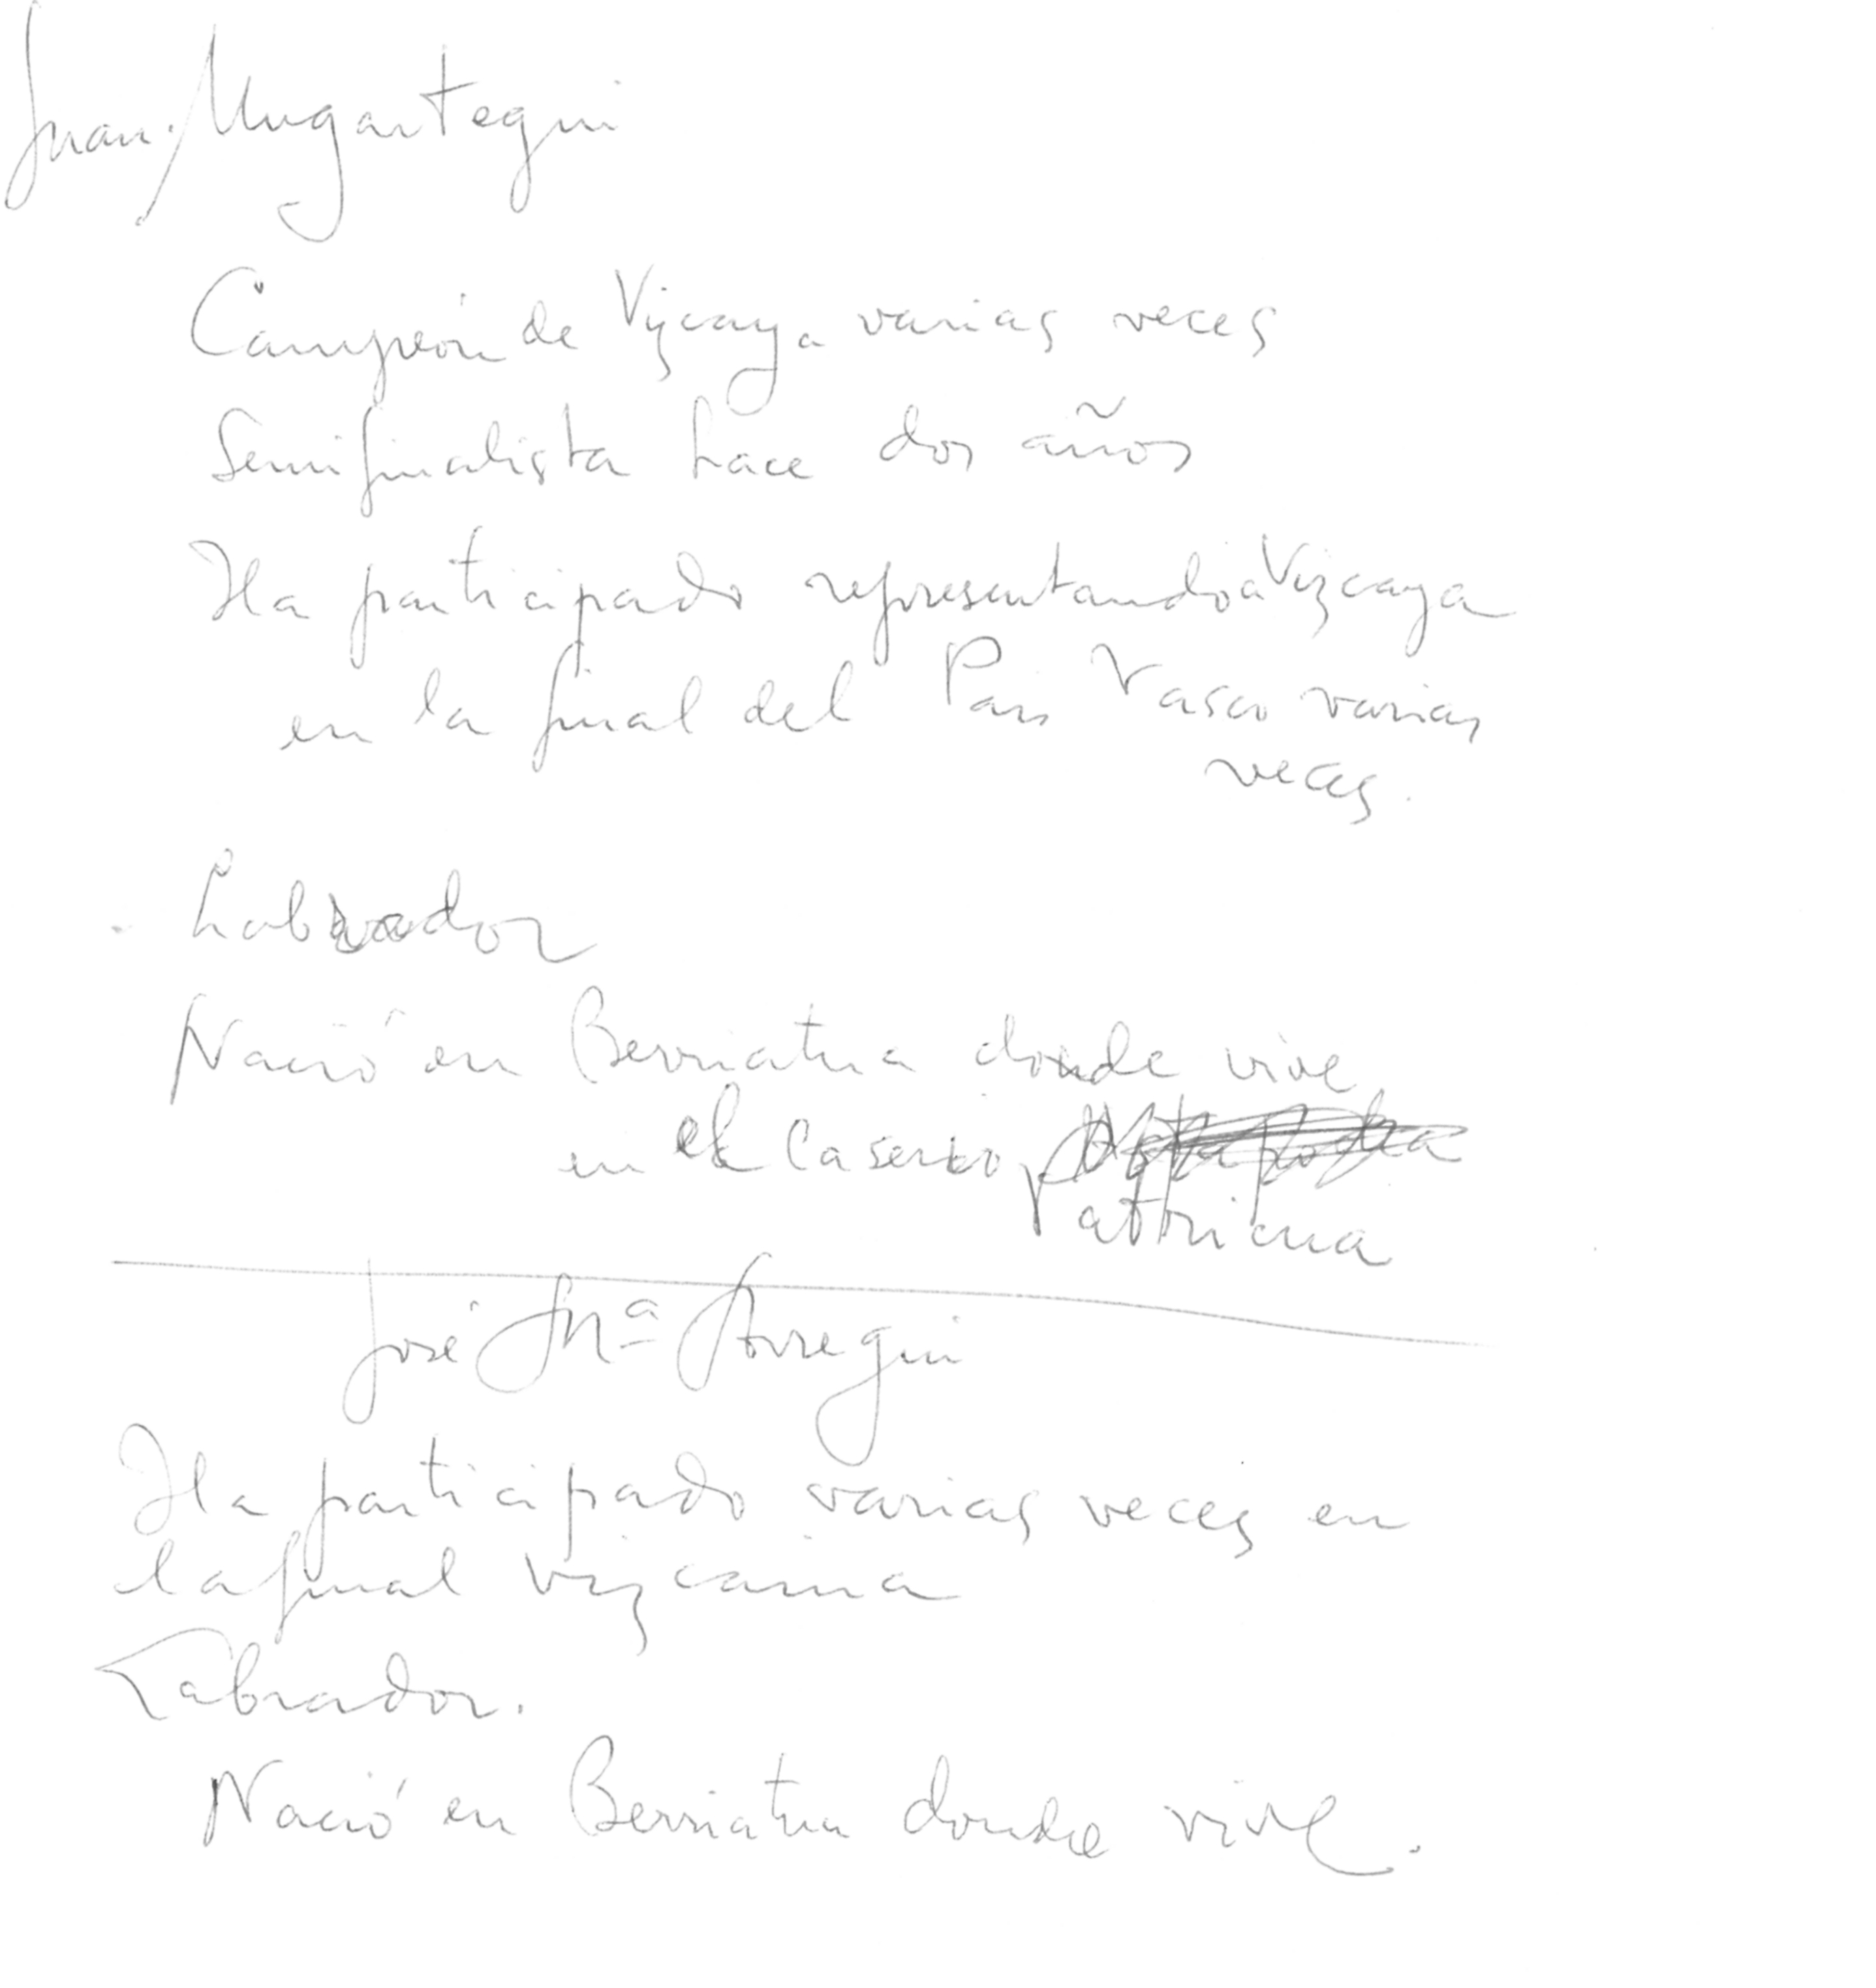 Juan Mugartegui
Campeón de Vizcaya varias veces
Semifinalista hace dos años
Ha participado representando a Vizcaya
en la final del Pais Vasco varias
veces.
- Labrador
Nació en Berriatua donde vive
en el Caserio
José Mª Arregui
Ha participado varias veces en
la final vizcaina
Labrador.
Nació en Berriatua donde vive.